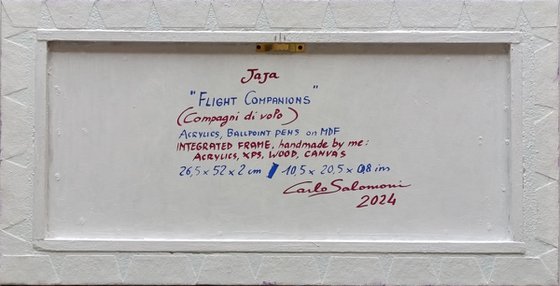 Jaja
"FLIGHT COMPANIONS"
(Compagni di volo)
ACRYLICS, BALLPOINT PENS on MDF
INTEGRATED FRAME, handmade by me:
ACRYLICS, XPS, WOOD, CANVAS
26,5 x 52 x 2 cm / 10,5 x 20,5 x 0,8 ins
Carlo Salomoni
2024